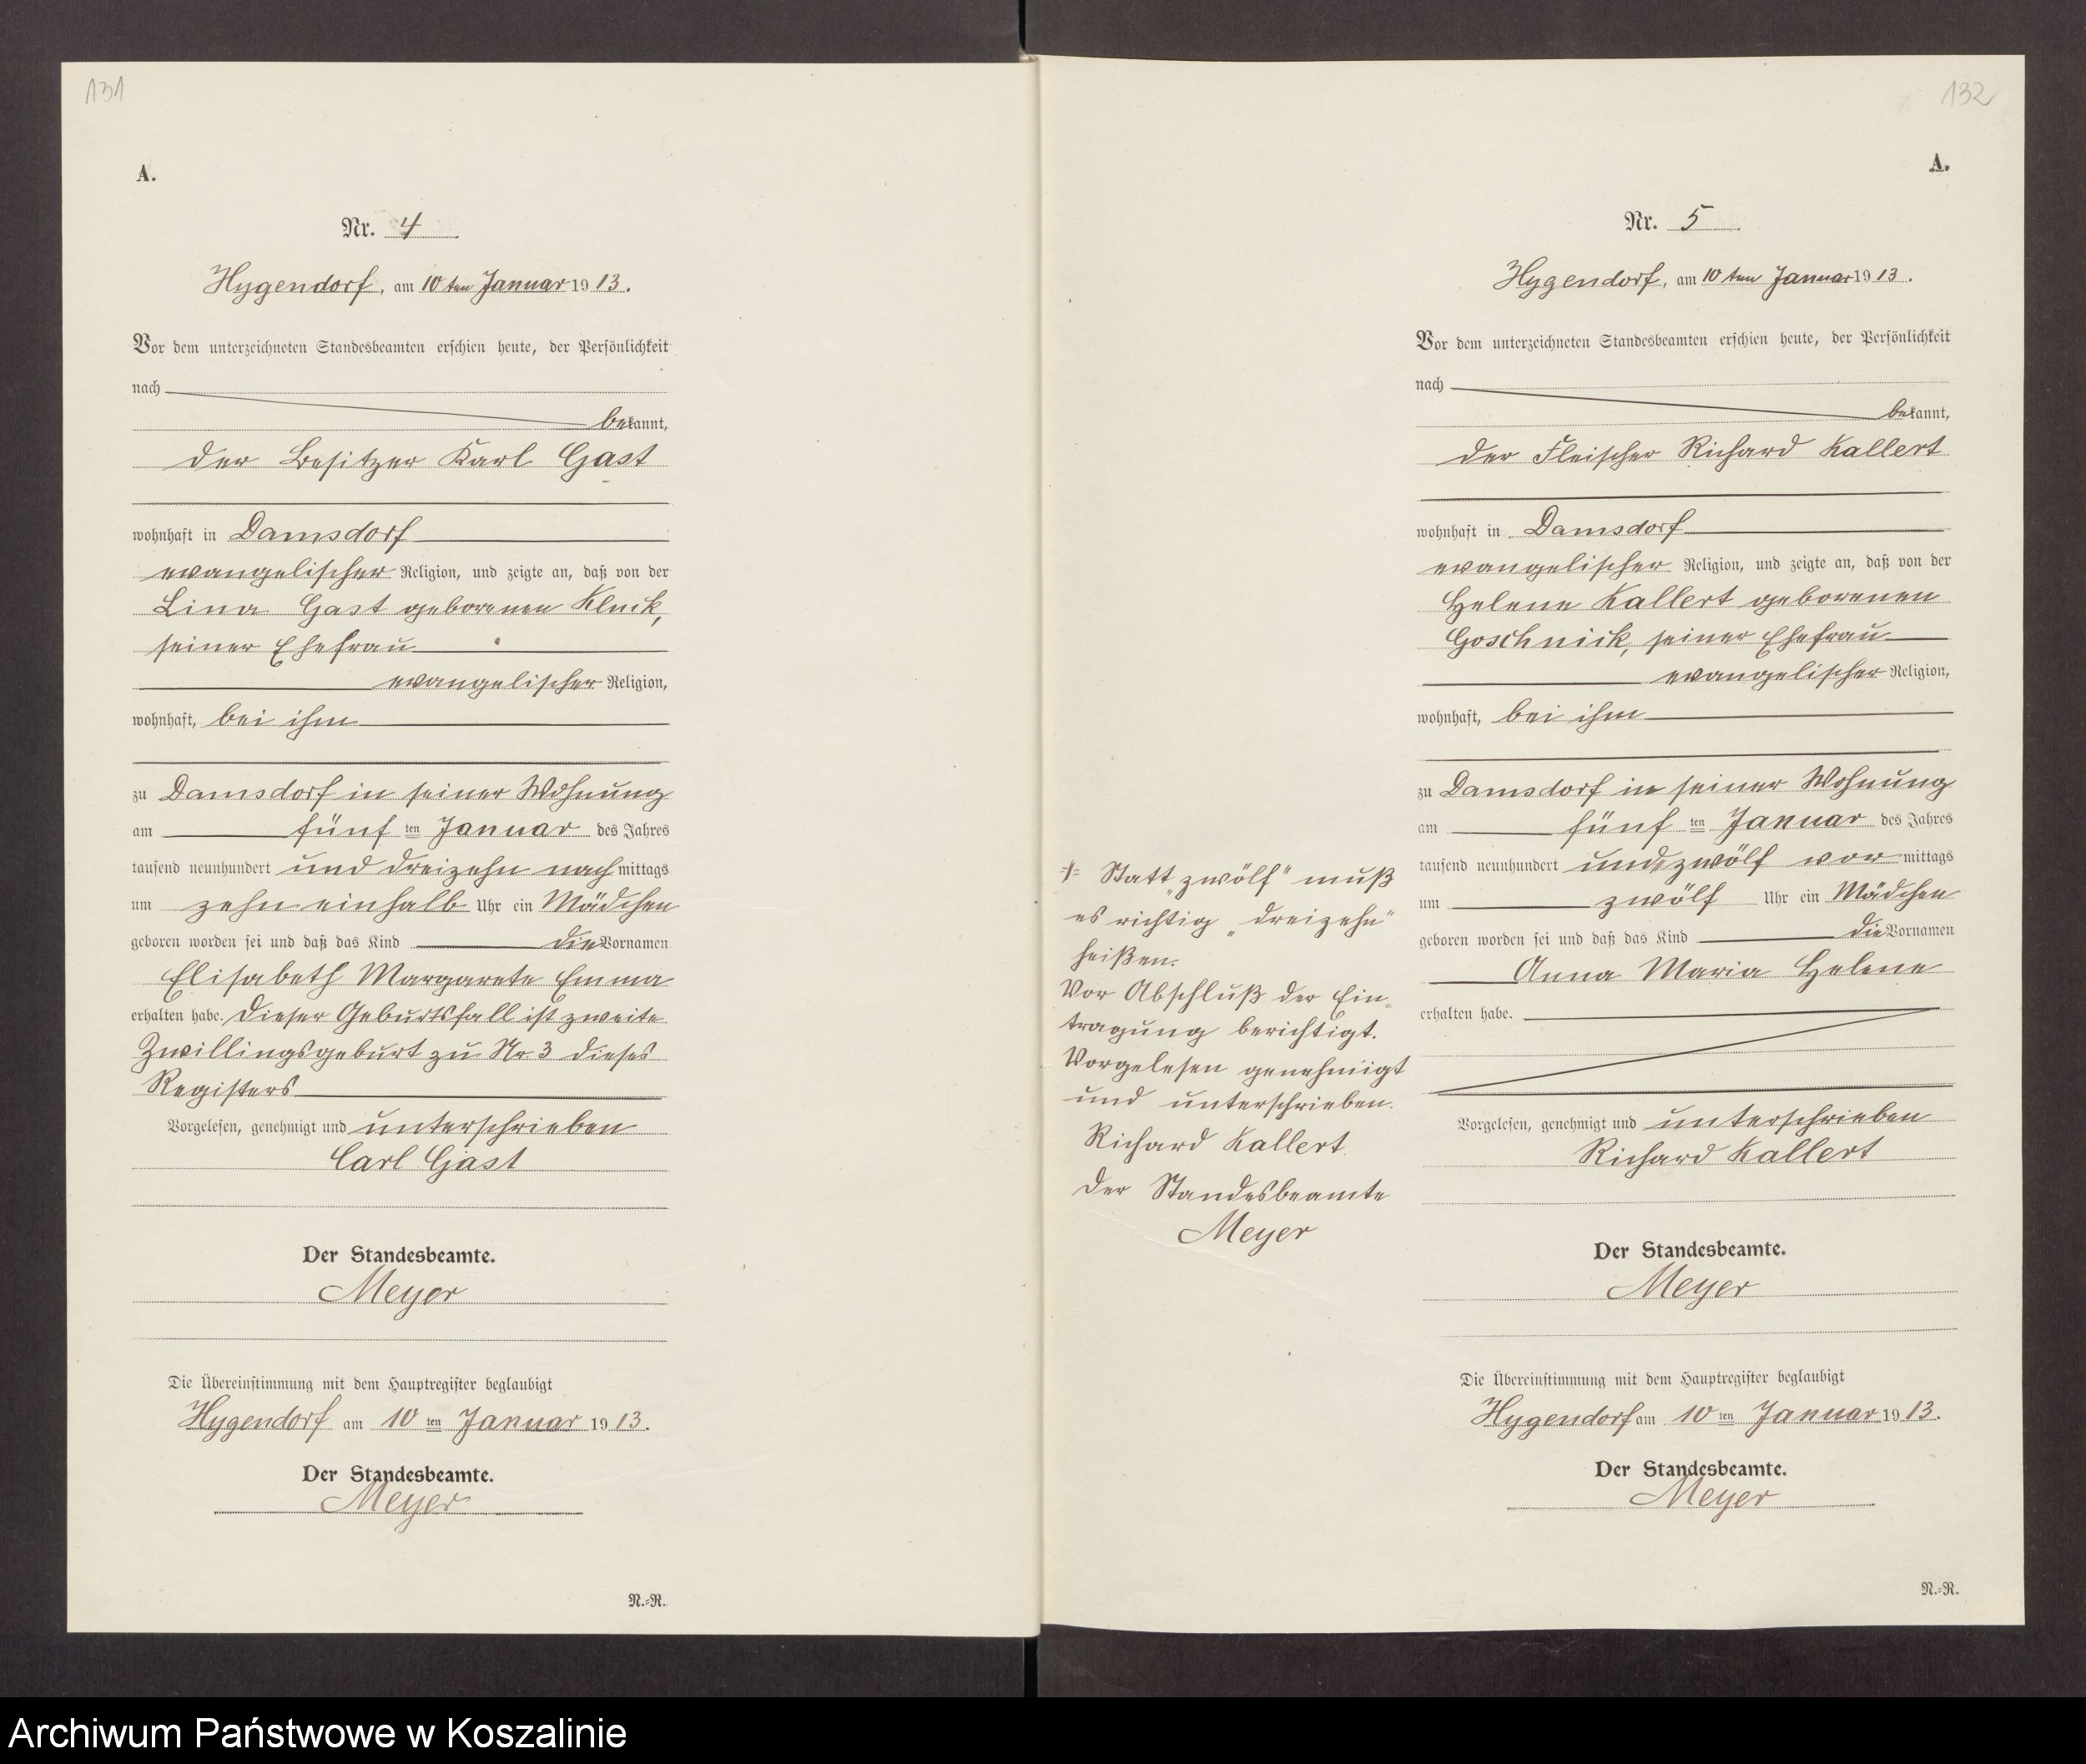 131
A.
Nr. 4
Hygendorf, am 10ten Januar 1913.
Vor dem unterzeichneten Standesbeamten erschien heute, der Persönlichkeit
nach
bekannt,
der Besitzer Karl Gast
wohnhaft in Damsdorf
evangelischer Religion, und zeigte an, daß von der
Lina Gast geborenen Kluck,
seiner Ehefrau
evangelischer Religion,
wohnhaft, bei ihm
zu Damsdorf in seiner Wohnung
am fünf ten Januar des Jahres
tausend neunhundert und dreizehn nachmittags
um zehn einhalb Uhr ein Mädchen
geboren worden sei und daß das Kind die Vornamen
Elisabeth Margarete Emma
erhalten habe. Dieser Geburtsfall ist zweite
Zwillingsgeburt zu Nr. 3 dieses
Registers
Vorgelesen, genehmigt und unterschrieben
Carl Gast
Der Standesbeamte.
Meyer
Die Übereinstimmung mit dem Hauptregister beglaubigt
Hygendorf am 10 ten Januar 1913.
Der Standesbeamte.
Meyer
N.=R.
132
A.
Nr. 5
Hygendorf, am 10ten Januar 1913.
Vor dem unterzeichneten Standesbeamten erschien heute, der Persönlichkeit
nach
bekannt,
der Fleischer Richard Kallert
wohnhaft in Damsdorf
evangelischer Religion, und zeigte an, daß von der
Helene Kallert geborenen
Goschnick, seiner Ehefrau
evangelischer Religion,
wohnhaft, bei ihm
zu Damsdorf in seiner Wohnung
am fünf ten Januar des Jahres
tausend neunhundert und zwölf vormittags
um zwölf Uhr ein Mädchen
geboren worden sei und daß das Kind die Vornamen
Anna Maria Helene
erhalten habe.
Vorgelesen, genehmigt und unterschrieben
Richard Kallert
Der Standesbeamte.
Meyer
Die Übereinstimmung mit dem Hauptregister beglaubigt
Hygendorf am 10 ten Januar 1913.
Der Standesbeamte.
Meyer
N.=R.
Statt „zwölf" muß
es richtig „dreizehn"
heißen.
Vor Abschluß der Ein-
tragung berichtigt.
Vorgelesen genehmigt
und unterschrieben.
Richard Kallert
Der Standesbeamte
Meyer
Archiwum Państwowe w Koszalinie